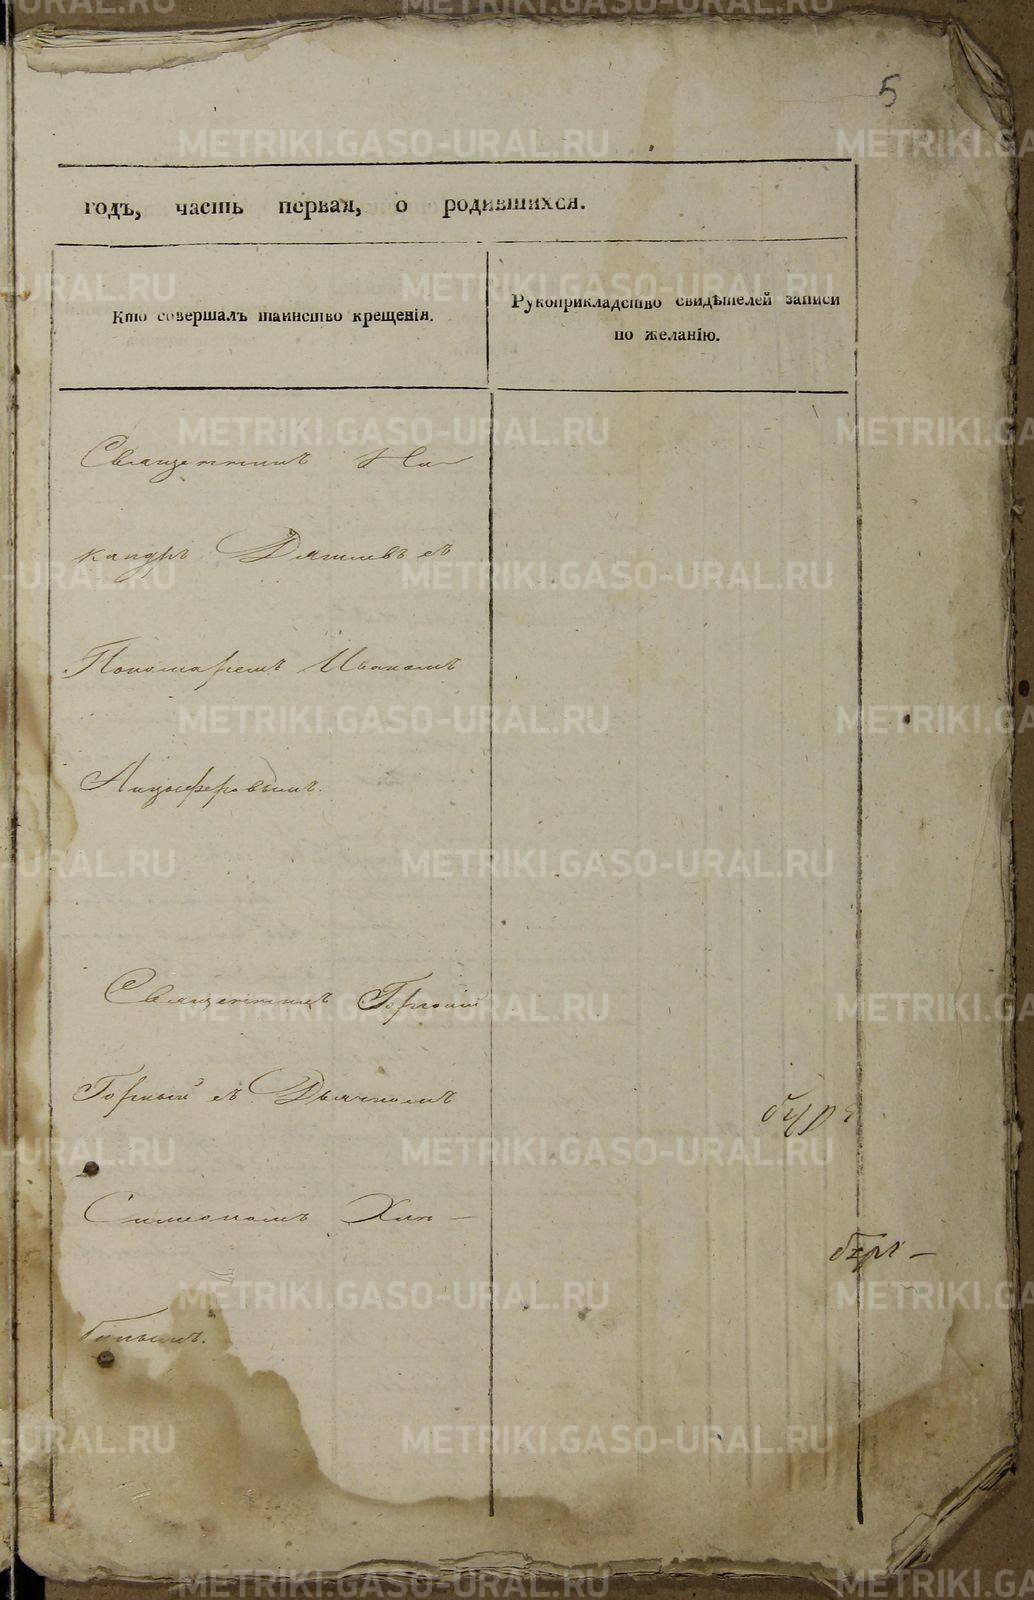 5
годъ, часть первая, о родившихся.
Кто совершалъ таинство крещенія.
Рукоприкладство свидѣтелей записи
по желанію.
Священникъ Ни-
кандръ съ
Пономаремъ Иваномъ
Никифоровымъ.
Священникъ Горгоній
Горный съ Дьячкомъ
Симеономъ Хлы-
METRIKI.GASO-URAL.RU